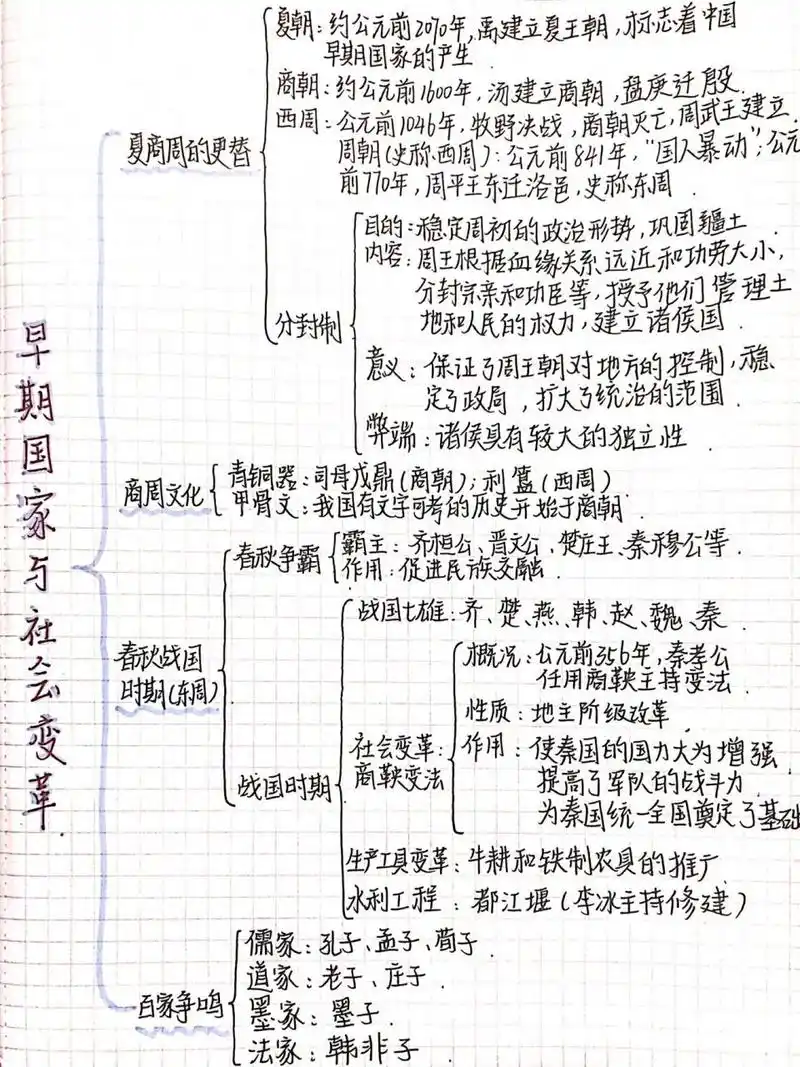 早期国家与社会变革.
夏商周的更替
夏朝：约公元前2070年，禹建立夏王朝，标志着中国
早期国家的产生.
商朝：约公元前1600年，汤建立商朝，盘庚迁殷.
西周：公元前1046年，牧野决战，商朝灭亡，周武王建立
周朝(史称西周)：公元前841年，“国人暴动”；公元
前770年，周平王东迁洛邑，史称东周.
分封制
目的：稳定周初的政治形势，巩固疆土.
内容：周王根据血缘关系远近和功劳大小，
分封宗亲和功臣等，授予他们管理土
地和人民的权力，建立诸侯国.
意义：保证了周王朝对地方的控制，稳
定了政局，扩大了统治的范围
弊端：诸侯具有较大的独立性.
商周文化
青铜器：司母戊鼎(商朝)；利簋(西周)
甲骨文：我国有文字可考的历史开始于商朝.
春秋战国
时期(东周)
春秋争霸
霸主：齐桓公、晋文公、楚庄王、秦穆公等.
作用：促进民族交融.
战国时期
战国七雄：齐、楚、燕、韩、赵、魏、秦.
社会变革：
商鞅变法
概况：公元前356年，秦孝公
任用商鞅主持变法.
性质：地主阶级改革
作用：使秦国的国力大为增强
提高了军队的战斗力
为秦国统一全国奠定了基础
生产工具变革：牛耕和铁制农具的推广
水利工程：都江堰(李冰主持修建)
百家争鸣
儒家：孔子、孟子、荀子.
道家：老子、庄子.
墨家：墨子.
法家：韩非子.